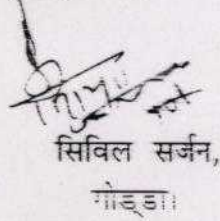 सिविल सर्जन,
गोड्डा।